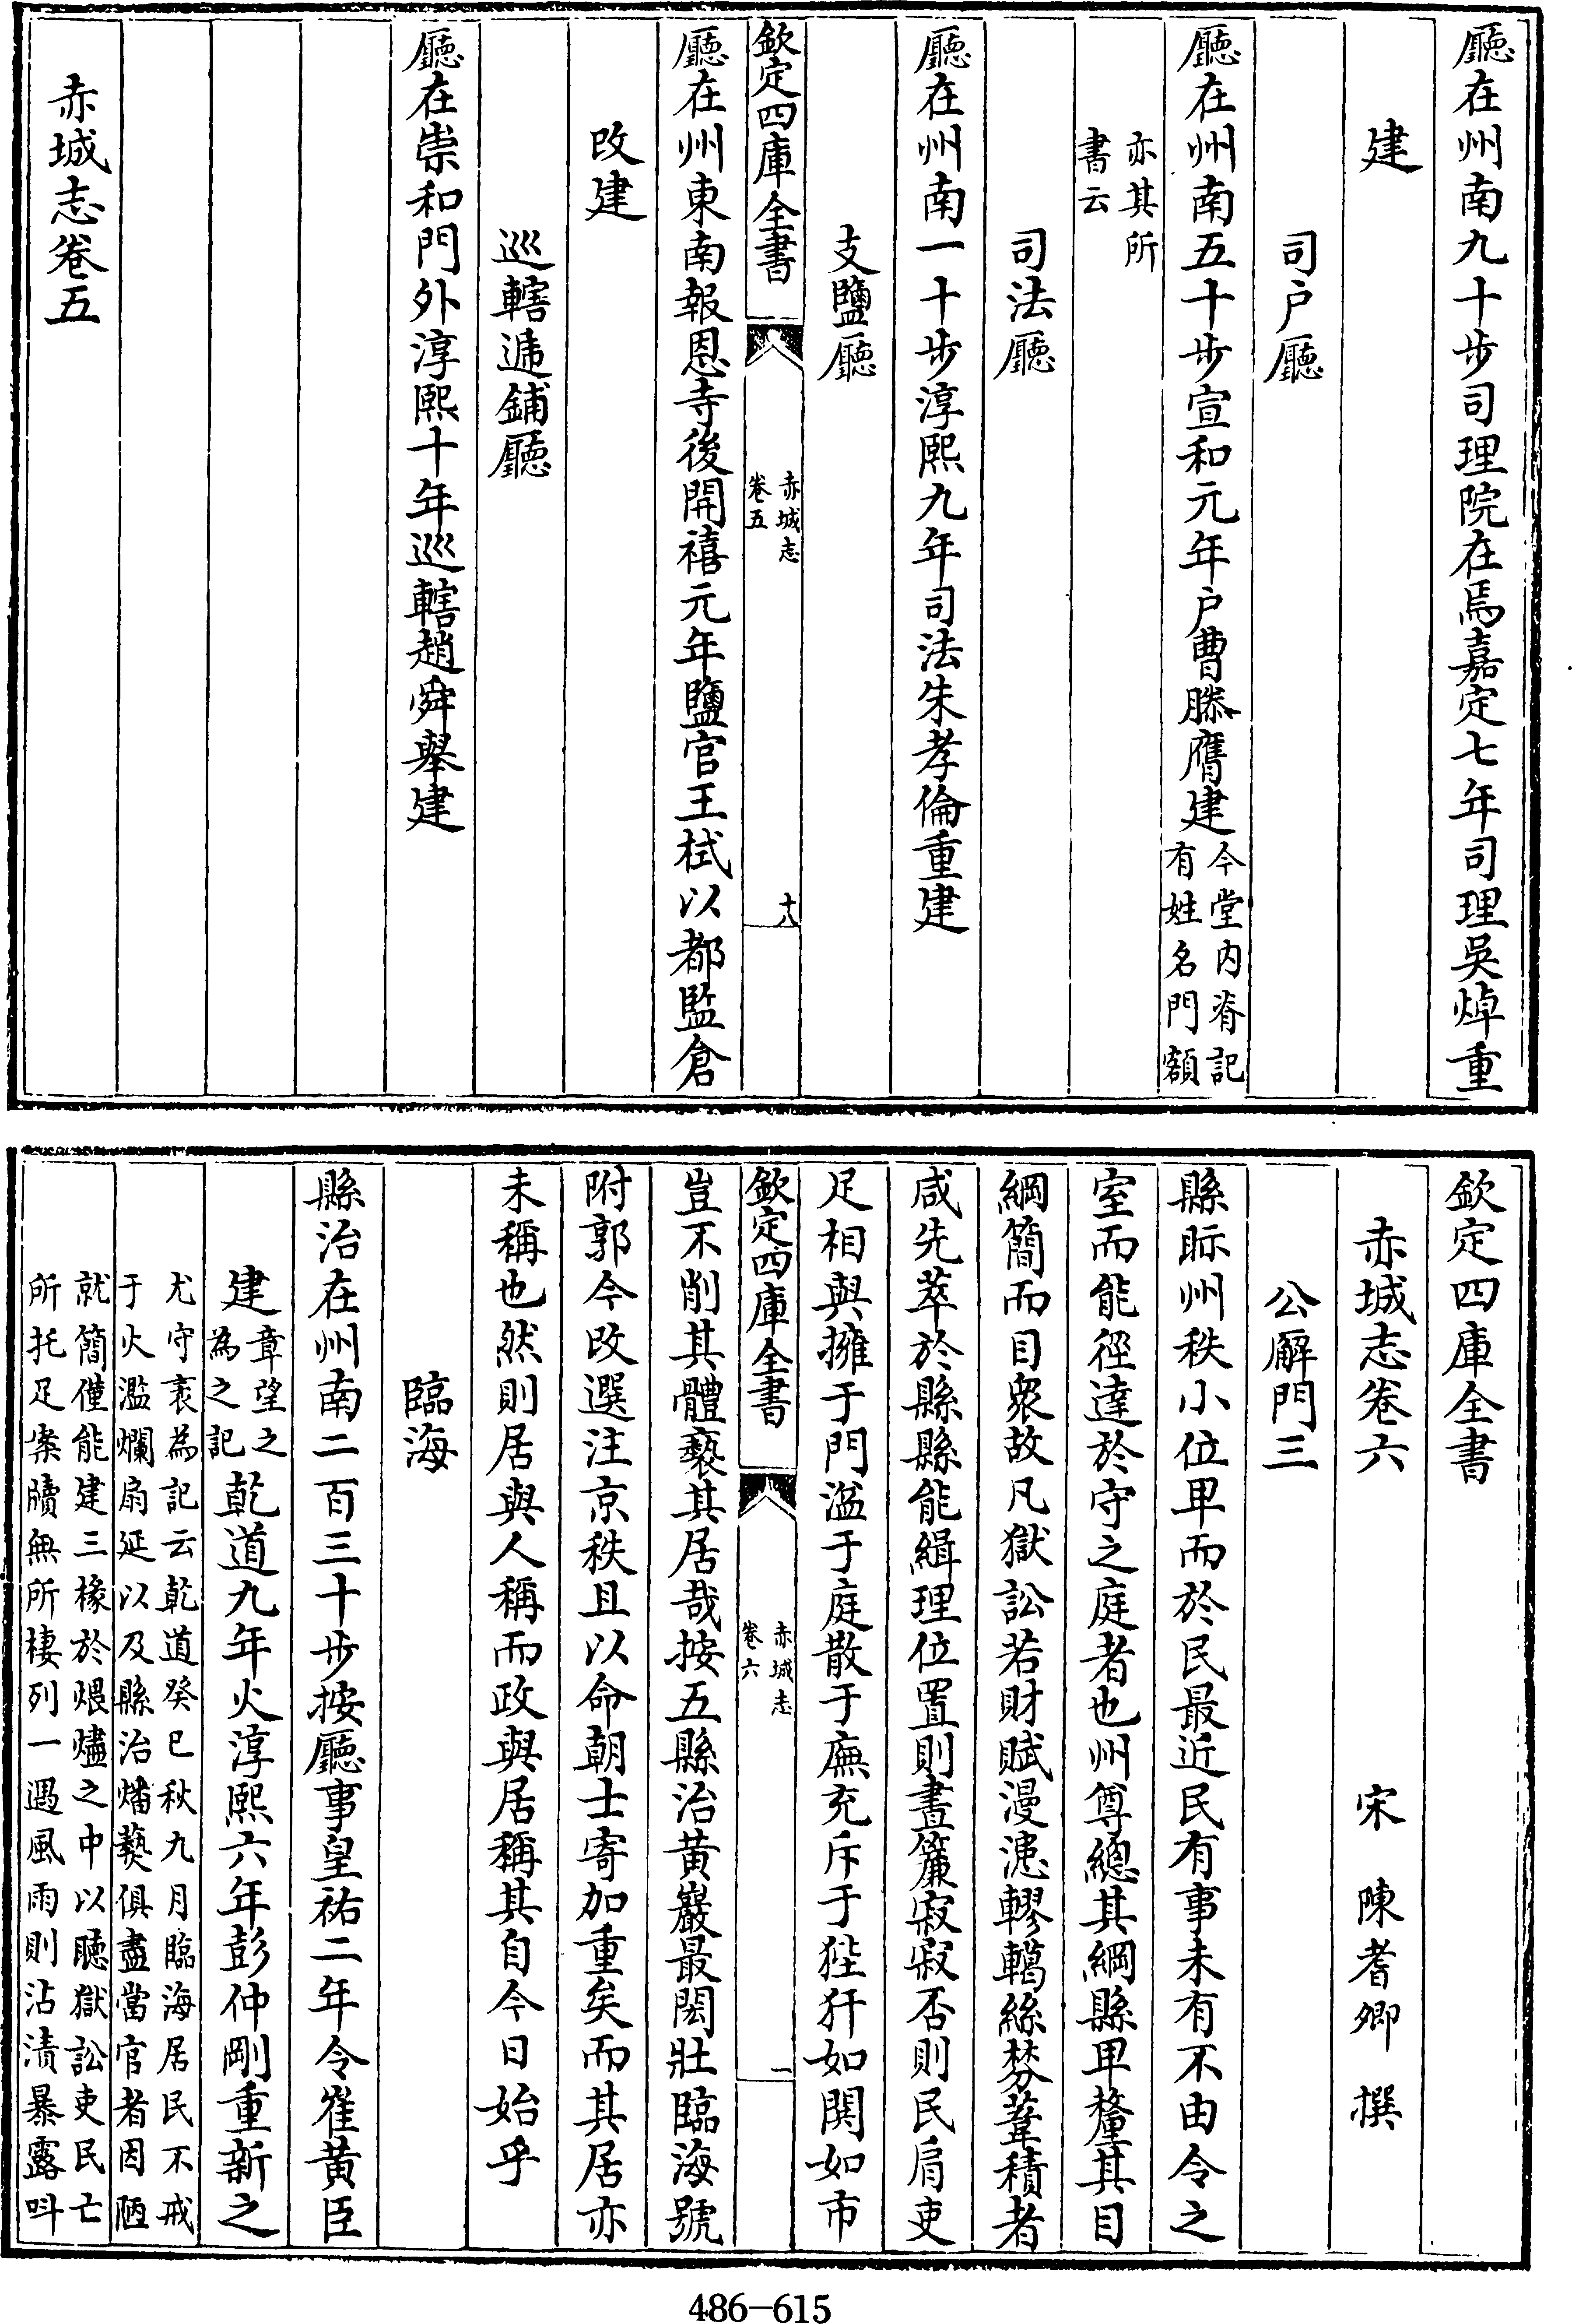 廳在州南九十步司理院在焉嘉定七年司理吳焯重
建
司户廳
廳在州南五十步宣和元年户曹滕膺建今堂内脊記
有姓名門額
亦其所
書云
司法廳
廳在州南一十步淳熙九年司法朱孝倫重建
支鹽廳
欽定四庫全書
赤城志
卷五
十八
廳在州東南報恩寺後開禧元年鹽官王栻以都監倉
改建
巡轄遞鋪廳
廳在崇和門外淳熙十年巡轄趙舜舉建
赤城志卷五
欽定四庫全書
赤城志卷六
宋 陳耆卿 撰
公廨門三
縣眎州秩小位卑而於民最近民有事未有不由令之
室而能徑達於守之庭者也州尊總其綱縣卑釐其目
綱簡而目衆故凡獄訟若財賦漫漶轇轕絲棼葦積者
咸先萃於縣縣能緝理位置則晝簾寂寂否則民肩吏
足相與擁于門溢于庭散于廡充斥于狴犴如鬨如市
欽定四庫全書
赤城志
卷六
一
豈不削其體褻其居哉按五縣治黄巖最閎壯臨海號
附郭今改選注京秩且以命朝士寄加重矣而其居亦
未稱也然則居與人稱而政與居稱其自今日始乎
臨海
縣治在州南二百三十步按廳事皇祐二年令崔黄臣
建章望之
為之記乾道九年火淳熙六年彭仲剛重新之
尤守袤為記云乾道癸巳秋九月臨海居民不戒
于火濫爛扇延以及縣治燔爇俱盡當官者因陋
就簡僅能建三椽於煨燼之中以聽獄訟吏民亡
所托足案牘無所棲列一遇風雨則沾漬暴露呌
486-615